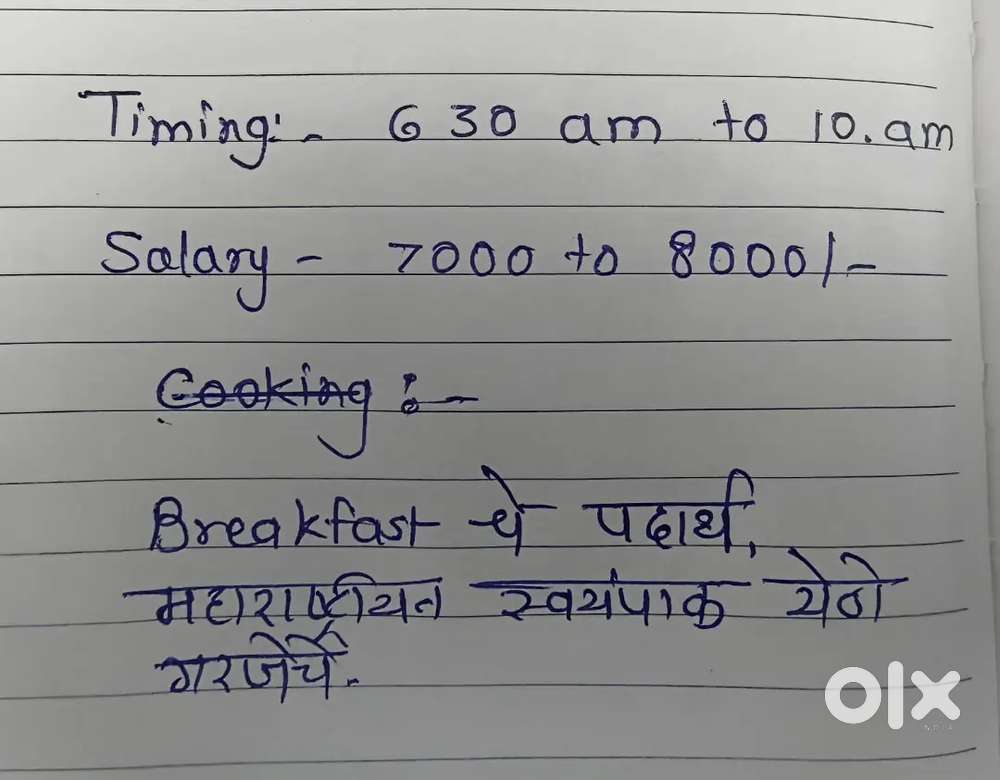 Timing:- 6 30 am to 10.am
Salary - 7000 to 8000/-
Cooking :-
Breakfast चे पदार्थ,
महाराष्ट्रीयन स्वयंपाक येणे
गरजेचे.
olx
INDIA